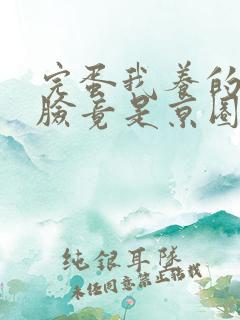 完蛋我养的
脸竟是京圈
纯银耳坠
未经同意禁止转载